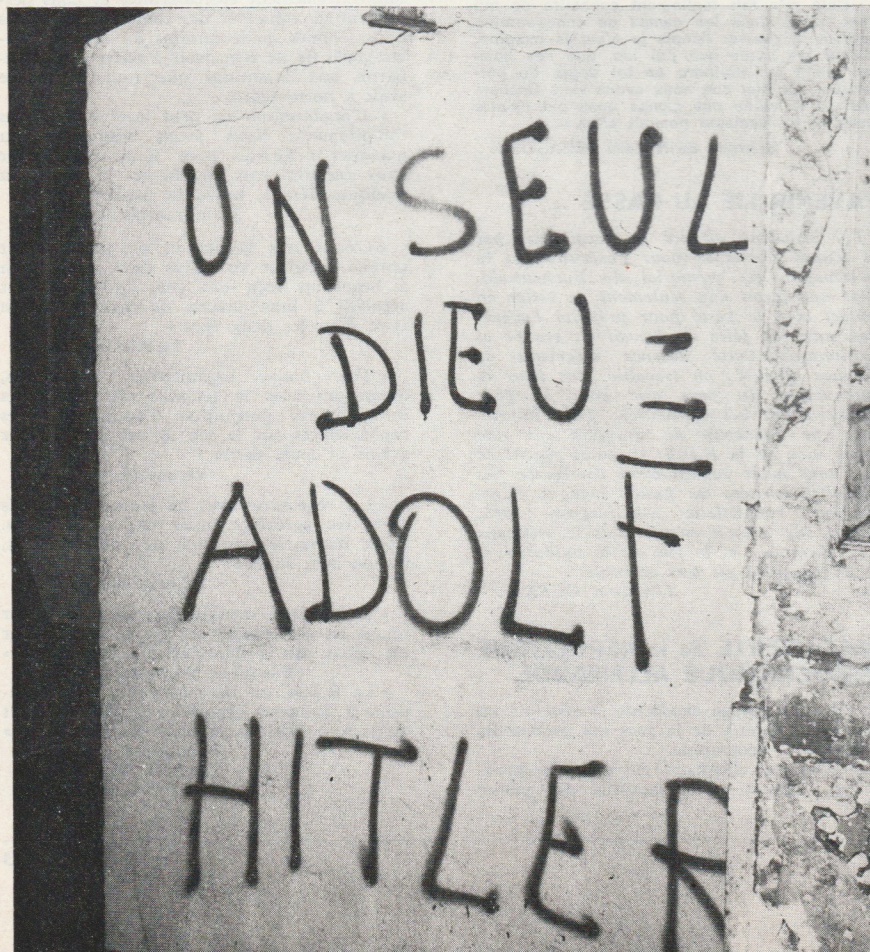 UN SEUL
DIEU =
ADOLF
HITLER